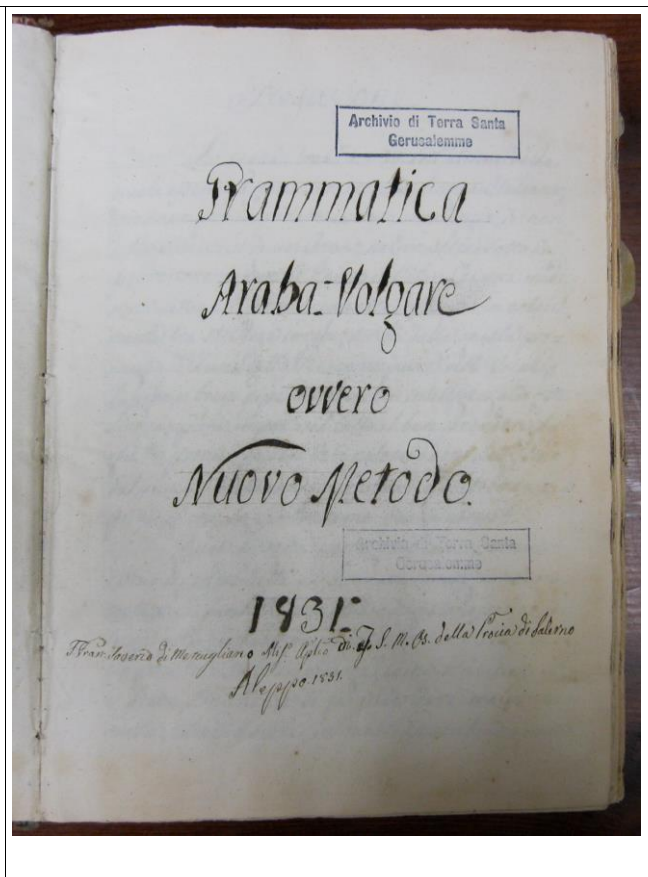 Archivio di Terra Santa
Gerusalemme
Grammatica
Araba-Volgare
ovvero
Nuovo Metodo.
Archivio di Terra Santa
Gerusalemme
1831.
di Miss.o Ap.lico di S. M. Os. della Prov.cia di Salerno
Aleppo. 1831.